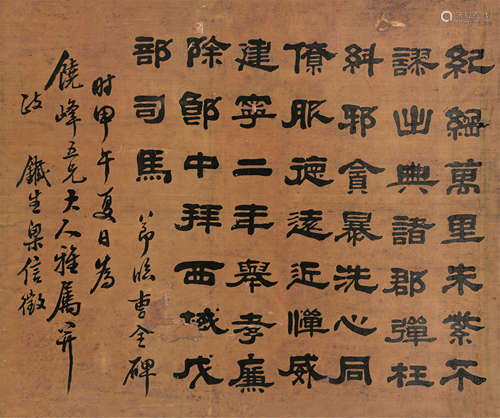 紀綱萬里朱紫不
謬出典諸郡彈枉
糾邪貪暴洗心同
僚服德遠近憚威
建寧二年舉孝廉
除郎中拜西域戊
部司馬
節臨曹全碑
时甲午夏日為
饒峰五兄大人雅属并
政 鐵生信徵